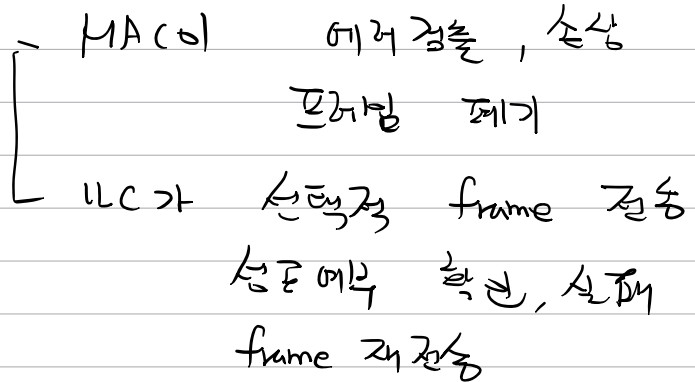 MAC이 에러검출, 손상
프레임 폐기
LLC가 선택적 frame 전송
성공여부 확인, 실패
frame 재전송